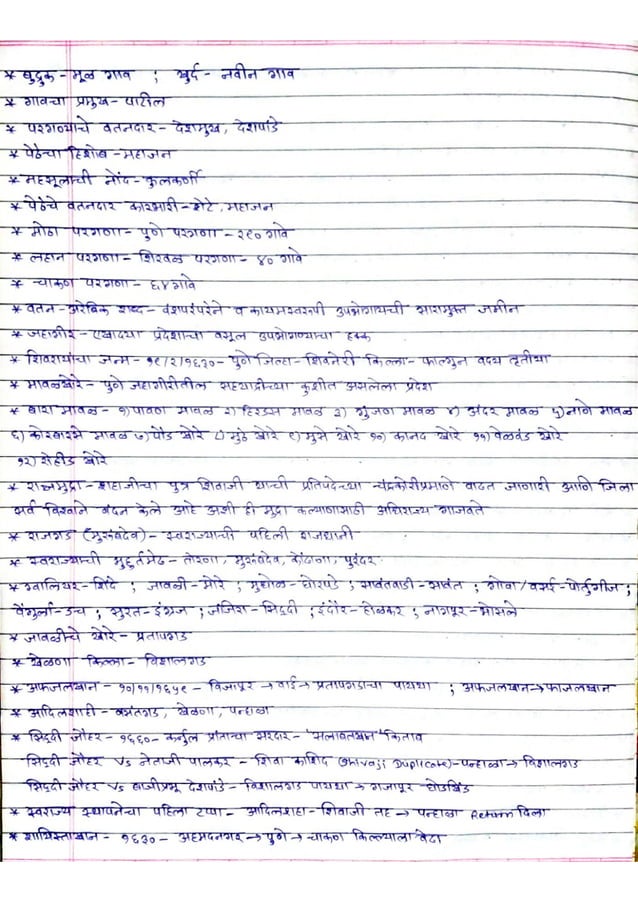 * बुद्रुक - मूळ गाव ; खुर्द - नवीन गाव
* गावचा प्रमुख - पाटील
* परगण्याचे वतनदार - देशमुख, देशपांडे
* पेठेचा हिशोब - महाजन
* महसूलाची नोंद - कुलकर्णी
* पेठेचे वतनदार कारभारी - शेटे, महाजन
* मोठा परगणा - पुणे परगणा - २९० गावे
* लहान परगणा - शिरवळ परगणा - ४० गावे
* चाकण परगणा - ६४ गावे
* वतन - अरेबिक शब्द - वंशपरंपरेने व कायमस्वरूपी उपभोगायची सारामुक्त जमीन
* जहागीर - एखाद्या प्रदेशाचा वसूल उपभोगण्याचा हक्क
* शिवरायांचा जन्म - १९/२/१६३० - पुणे जिल्हा - शिवनेरी किल्ला - फाल्गुन वद्य तृतीया
* मावळखोरे - पुणे जहागीरीतील सह्याद्रीच्या कुशीत असलेला प्रदेश
* बारा मावळ - १) पावण मावळ २) हिरडस मावळ ३) गुंजण मावळ ४) अंदर मावळ ५) नाणे मावळ
६) कोरबारसे मावळ ७) पौंड खोरे ८) मुठे खोरे ९) मुसे खोरे १०) कानद खोरे ११) वेळवंड खोरे
१२) रोहीड खोरे
* राजमुद्रा - शहाजीचा पुत्र शिवाजी याची प्रतिपदेच्या चंद्रकोरीप्रमाणे वाढत जाणारी आणि जिला
सर्व विश्वाने वंदन केले आहे अशी ही मुद्रा कल्याणासाठी अधिराज्य गाजवते
* राजगड (मुरुंबदेव) - स्वराज्याची पहिली राजधानी
* स्वराज्याची मुहूर्तमेढ - तोरणा, मुरुंबदेव, कोंढाणा, पुरंदर
* ग्वालियर - शिंदे ; जावळी - मोरे ; मुधोळ - घोरपडे ; सावंतवाडी - सावंत ; गोवा/वसई - पोर्तुगीज ;
वेंगुर्ला - डच ; सुरत - इंग्रज ; जंजिरा - सिद्दी ; इंदौर - होळकर ; नागपूर - भोसले
* जावळीचे खोरे - प्रतापगड
* खेळणा किल्ला - विशालगड
* अफजलखान - १०/११/१६५९ - विजापूर → वाई → प्रतापगडाचा पायथा ; अफजलखान → फाजलखान
* आदिलशाही - वसंतगड, खेळणा, पन्हाळा
* सिद्दी जौहर - १६६० - कर्नुल प्रांताचा सरदार - 'सलाबतखान' किताब
सिद्दी जौहर VS नेताजी पालकर - शिवा काशिद (Shivaji Duplicate) - पन्हाळा → विशालगड
सिद्दी जौहर VS बाजीप्रभू देशपांडे - विशालगड पायथा → गजापूर घोडखिंड
* स्वराज्य स्थापनेचा पहिला टप्पा - आदिलशहा - शिवाजी तह → पन्हाळा Return दिला
* शायिस्ताखान - १६३० - अहमदनगर → पुणे → चाकण किल्ल्याला वेढा